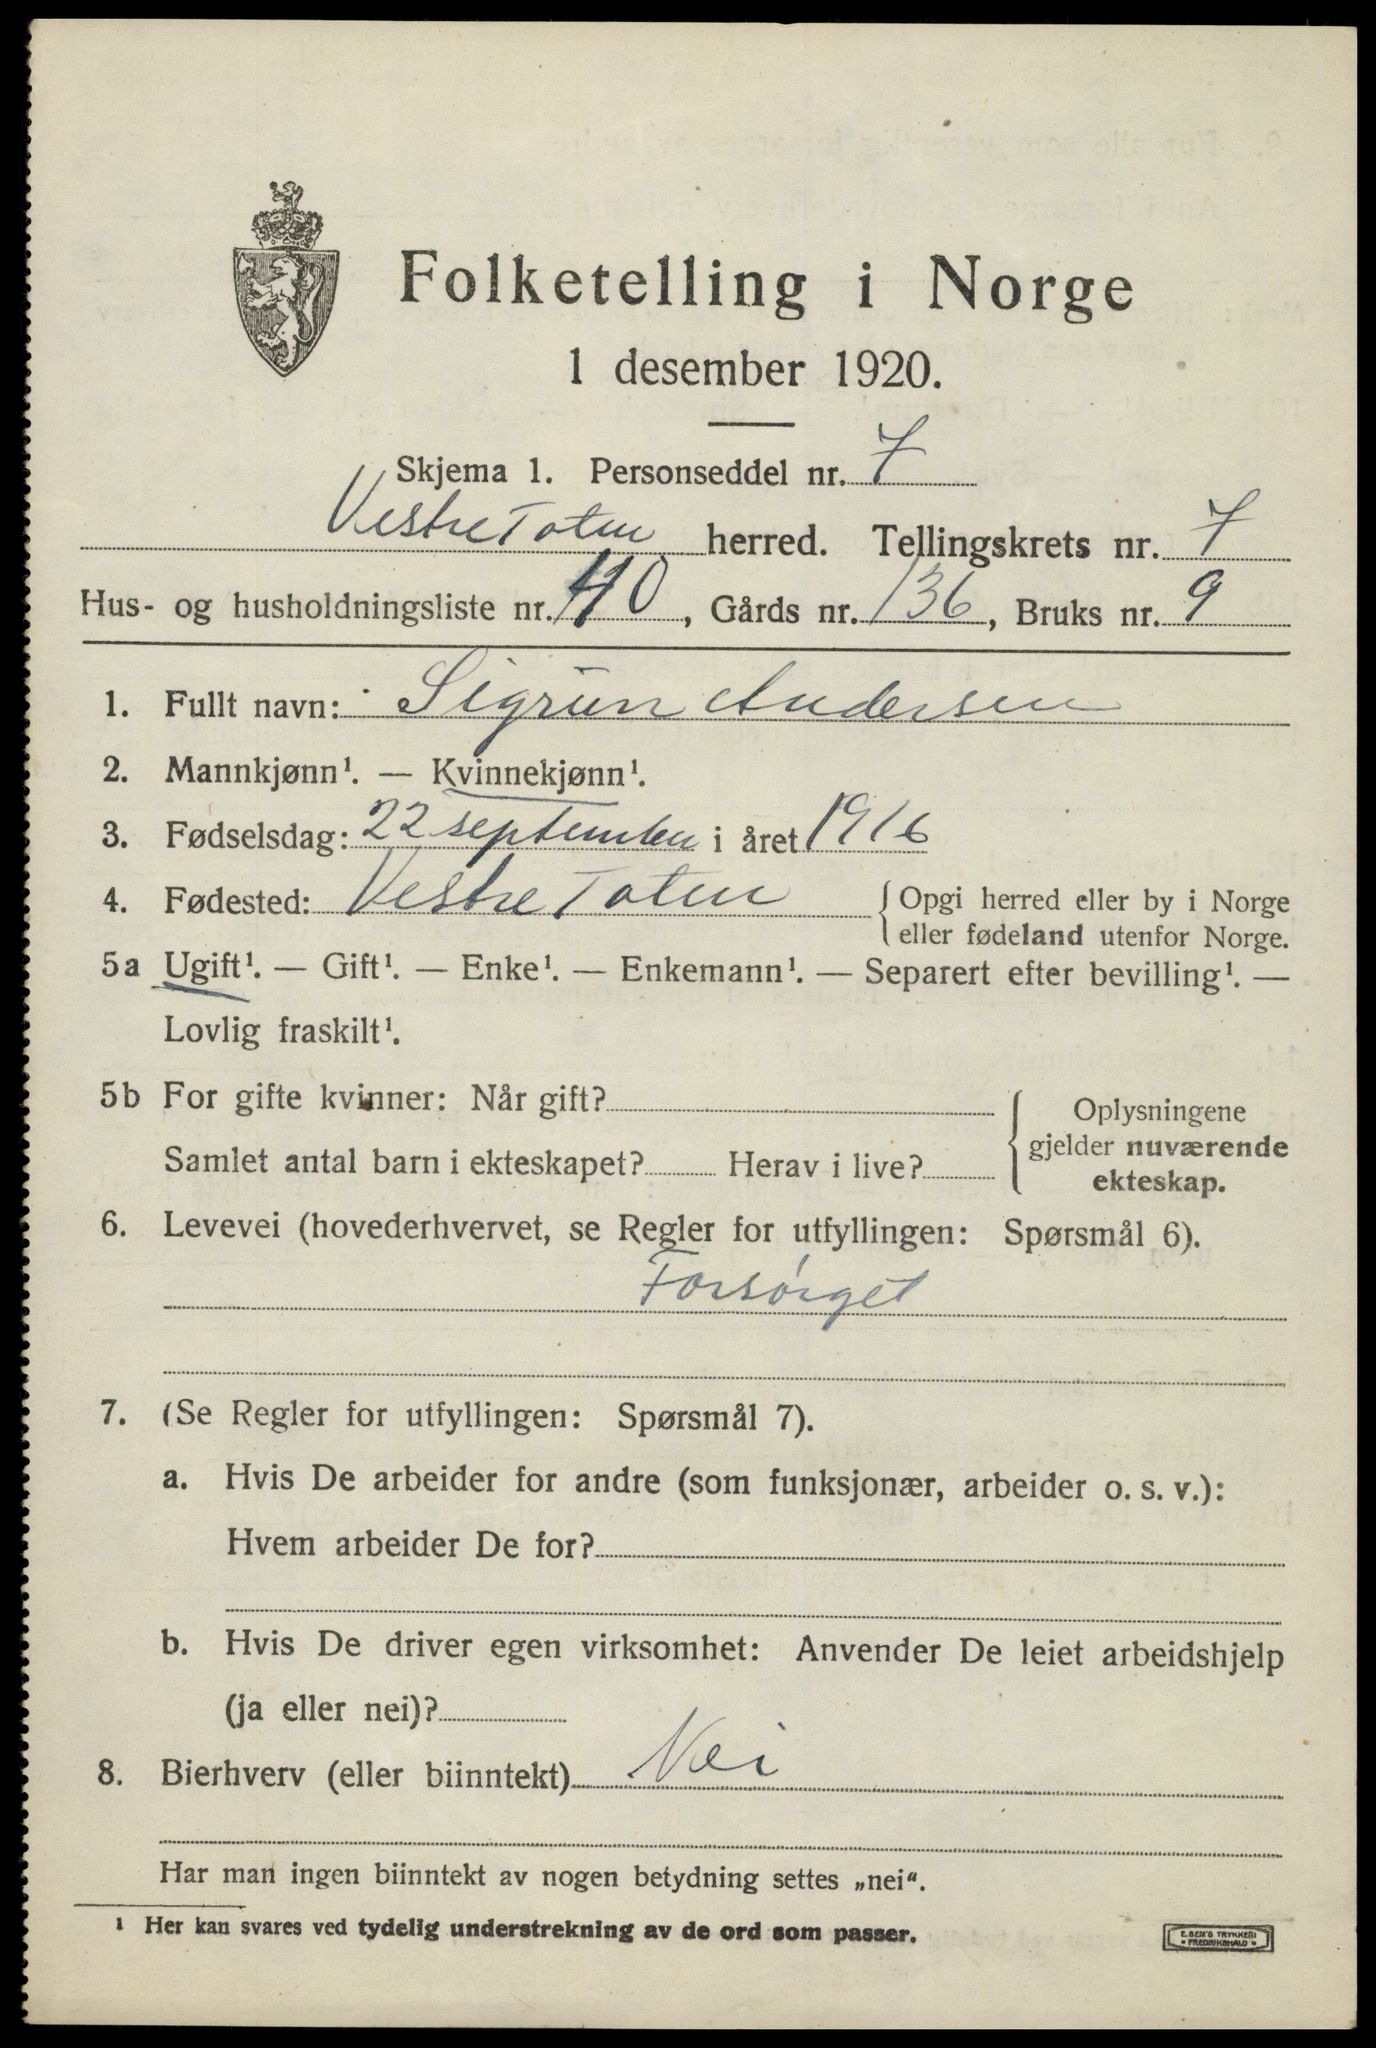 Folketelling i Norge
1 desember 1920.
Skjema 1. Personseddel nr. 7
Vestre Toten herred. Tellingskrets nr. 7
Hus- og husholdningsliste nr. 40, Gårds nr. 136, Bruks nr. 9
1. Fullt navn: Sigrun Andersen
2. Mannkjønn¹. — Kvinnekjønn¹.
3. Fødselsdag: 22 september i året 1916
4. Fødested: Vestre Toten { Opgi herred eller by i Norge
eller fødeland utenfor Norge.
5a Ugift¹. — Gift¹. — Enke¹. — Enkemann¹. — Separert efter bevilling¹. —
Lovlig fraskilt¹.
5b For gifte kvinner: Når gift?
Samlet antal barn i ekteskapet? Herav i live?
Oplysningene
gjelder nuværende
ekteskap.
6. Levevei (hovederhvervet, se Regler for utfyllingen: Spørsmål 6).
Forsørget
7. (Se Regler for utfyllingen: Spørsmål 7).
a. Hvis De arbeider for andre (som funksjonær, arbeider o. s. v.):
Hvem arbeider De for?
b. Hvis De driver egen virksomhet: Anvender De leiet arbeidshjelp
(ja eller nei)?
8. Bierhverv (eller biinntekt) Nei
Har man ingen biinntekt av nogen betydning settes „nei“.
¹ Her kan svares ved tydelig understrekning av de ord som passer.
E. SEM'S TRYKKERI
• FREDRIKSHALD •